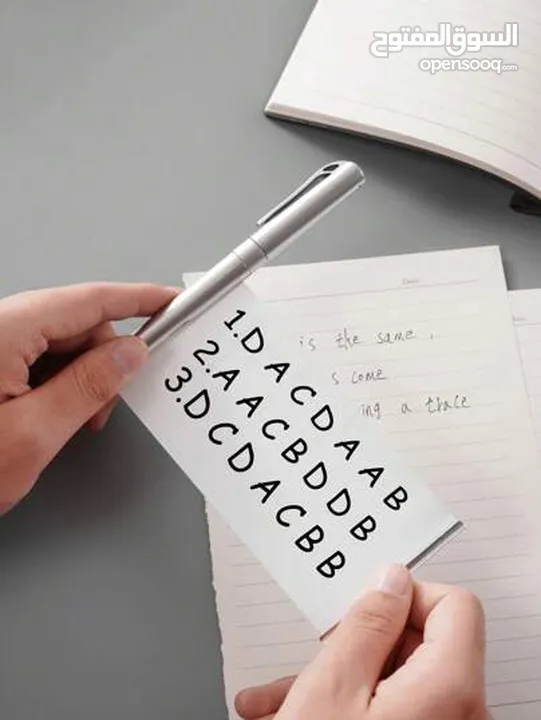 السوق المفتوح
opensooq.com
is the same ,
s come
ing a trace
1.D A C D A A B
2.A A C B D D B
3.D C D A C B B